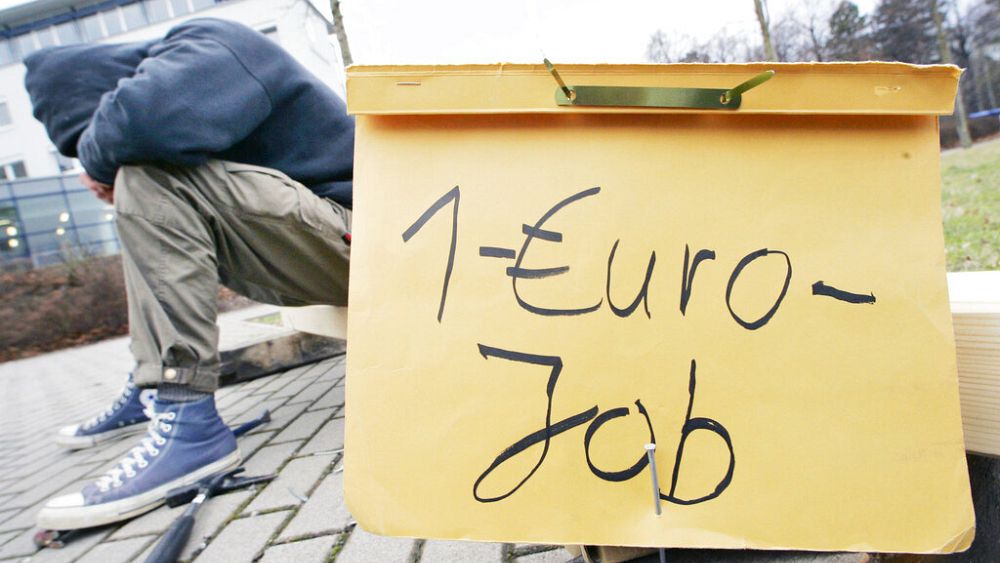 1-Euro-
Job